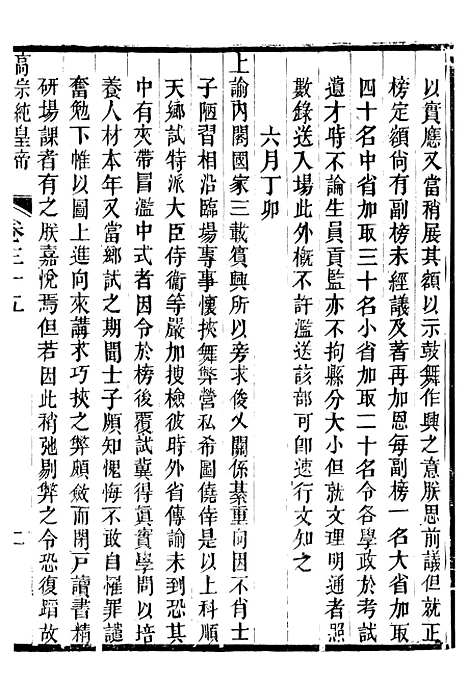 以實應又當稍展其額以示鼓舞作興之意朕思前議但就正
榜定額尙有副榜未經議及著再加恩每副榜一名大省加取
四十名中省加取三十名小省加取二十名令各學政於考試
遺才時不論生員貢監亦不拘縣分大小但就文理明通者照
數錄送入場此外槪不許濫送該部可卽速行文知之
六月丁卯
上諭內閣國家三載賓興所以旁求俊乂關係綦重向因不肖士
子陋習相沿臨場專事懷挾舞弊營私希圖僥倖是以上科順
天鄉試特派大臣侍衞等嚴加搜檢彼時外省傳諭未到恐其
中有夾帶冒濫中式者因令於榜後覆試冀得眞實學問以培
養人材本年又當鄉試之期聞士子頗知愧悔不敢自罹罪譴
奮勉下帷以圖上進向來講求巧挾之弊頗斂而閉戶讀書精
硏場課者有之朕嘉悅焉但若因此稍弛剔弊之令恐復蹈故
高宗純皇帝 卷三十九 二